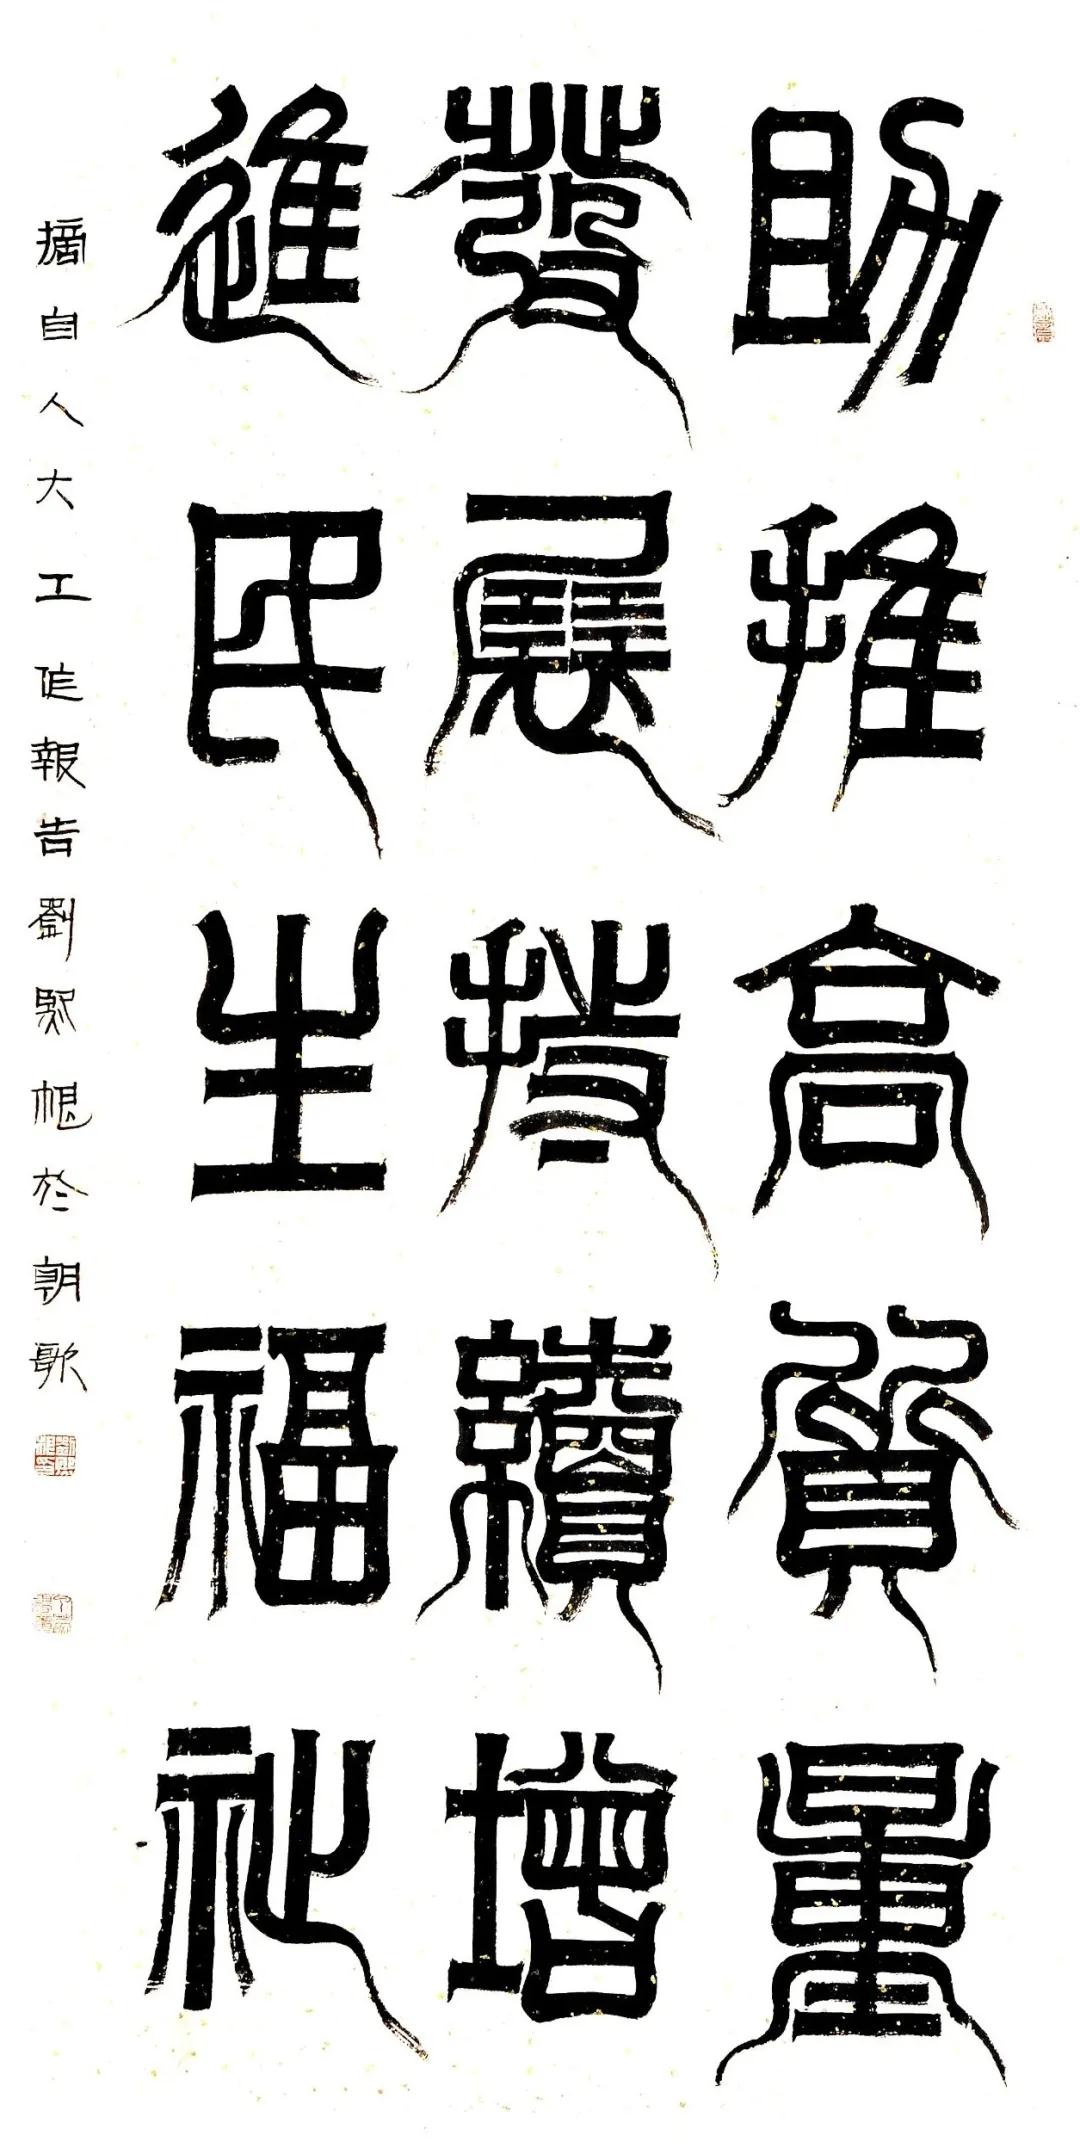 助推高質量
發展持續增
進民生福祉
摘自人大工作報告劉於朝歌